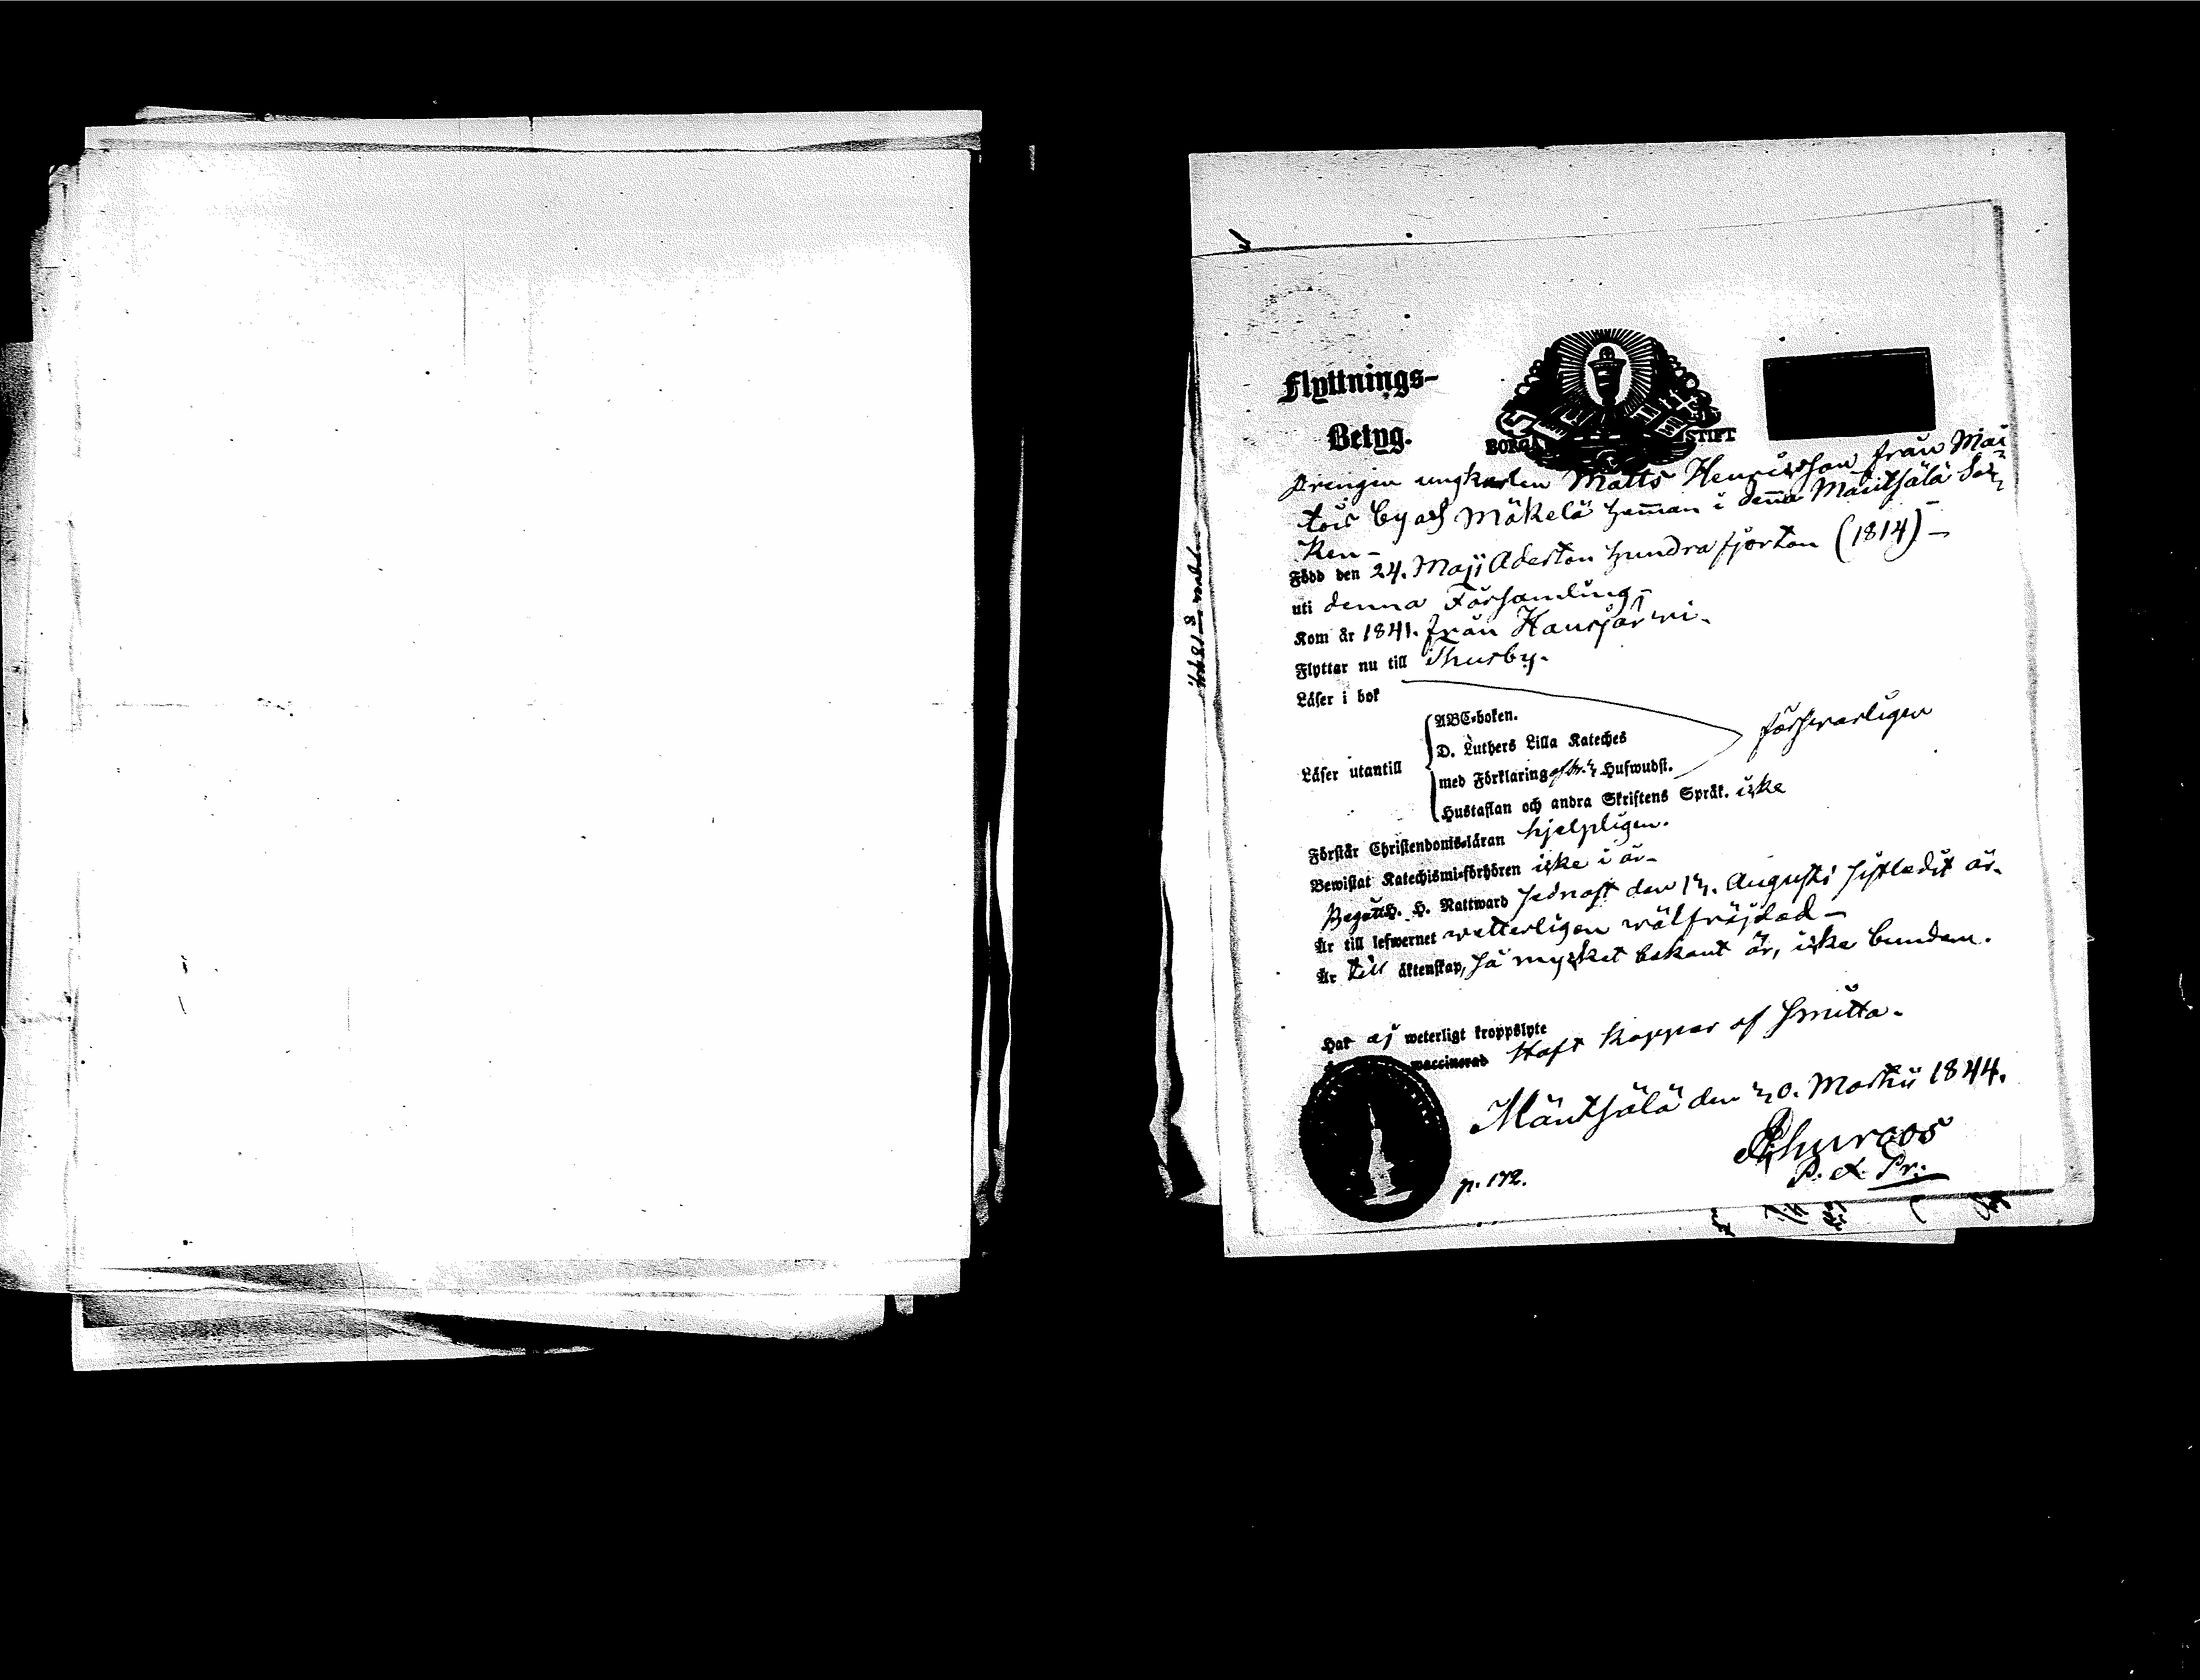 Flyttnings-
Betyg.
BORGÅ STIFT
Drengen ungkarlen Matts Henricsson från Män
tois by och Mäkelä heman i denna Mäntsälä Soc
ken -
Född den 24. Maji Aderton hundra fjorton (1814) -
uti denna Församling -
Kom år 1841. från Hausjärwi.
Flyttar nu till Thusby.
Läser i bok
ABC-boken.
D. Luthers Lilla Kateches
försvarligen
Läser utantill
med Förklaring Hufwudst.
Hustaflan och andra Skriftens Språk. icke
Förstår Christendoms-läran hjelpligen.
Bewistat Katechismi-förhören icke i år -
Begått H. H. Nattward sednast den Augusti sistledit år.
Är till lefwernet wetterligen wälfräjdad -
Är till äktenskap, så mycket bekant är, icke bunden.
Har ej weterligt kroppslyte
waccinerad Haft koppor af smitta.
Mäntsälä den 20. Martii 1844.
P. Pr:
p. 172.